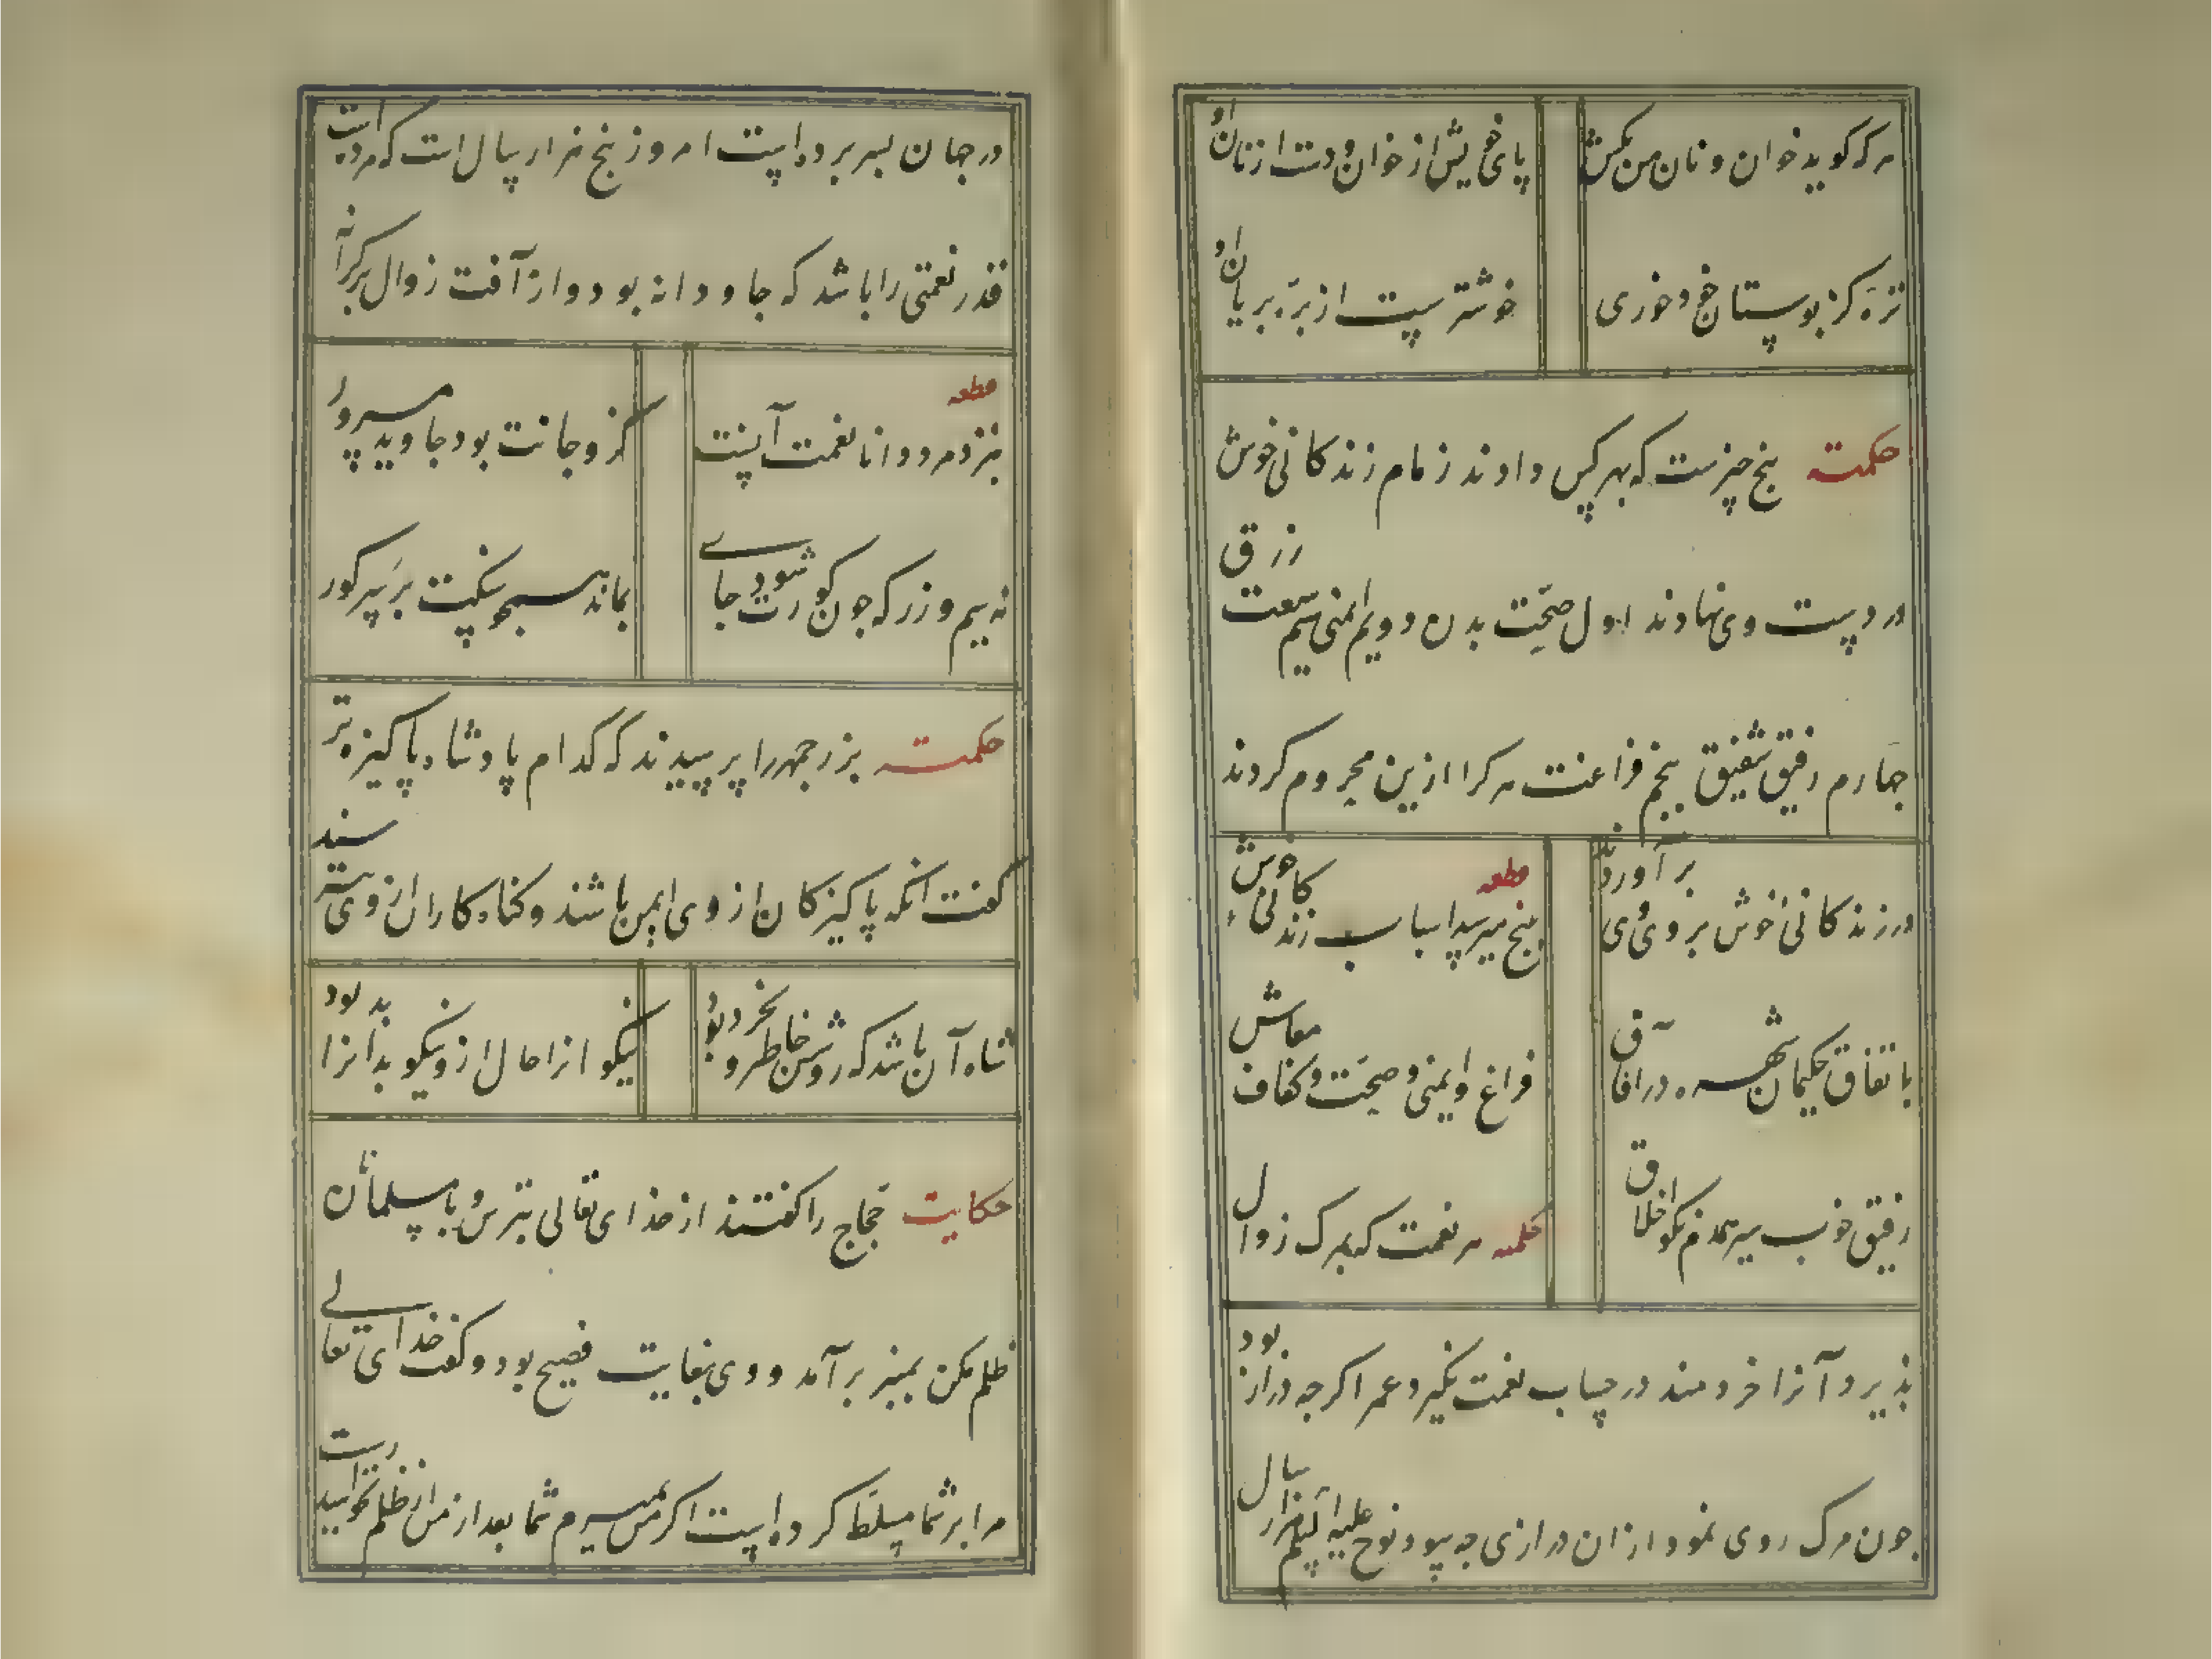 هر که کوید خوان و نان من مکش
پای خویش از خوان و دست از نان او
تره کز بوستان خود خوری
خوشتر ست از بره بریان او
حکمت پنج چیزست که بهر کس دادند زمام زندکانی خوش
در دست وی نهادند اول صحت بدن دویم ایمنی سیم سعت رزق
چهارم رفیق شفیق پنجم فراغت هر کرا ازین محروم کردند
در زندکانی خوش بر وی برآوردند
قطعه
بپنج میرسد اسباب زندکانی خوش
باتفاق حکیمان شهره در آفاق
فراغ و ایمنی و صحت و کفاف معاش
رفیق خوب سیر همدم نکو اخلاق
حکمت هر نعمت که بمرک زوال
پذیرد آنرا خردمند در حساب نعمت نکیرد عمر اکرچه دراز بود
چون مرک روی نمود از ان درازی چه سود نوح علیه السلم هزار سال
در جهان بسر برده است امروز پنج هزار سال است که مرده است
قدر نعمتی را باشد که جاودانه بود و از آفت زوال بر کرانه
قطعه
بنزد مرد دانا نعمت آنست
کزو جانت بود جاوید مسرور
نه سیم و زر که چون کورت شود جای
بماند همچو سنکت بر سر کور
حکمت بزرجمهر را پرسیدند که کدام پادشاه پاکیزه تر
کفت آنکه پاکیزکان از وی ایمن باشند و کناه کاران از وی ترسند
شاه آن باشد که روشن خاطر و بخرد بود
نیکوانرا حال ازو نیکو بدانرا بد بود
حکایت حجاج را کفتند از خدای تعالی بترس و با مسلمانان
ظلم مکن بمنبر برآمد و وی بغایت فصیح بود و کفت خدای تعالی
مرا بر شما مسلط کرده است اکر من میرم شما بعد از من از ظلم نخواهید رست